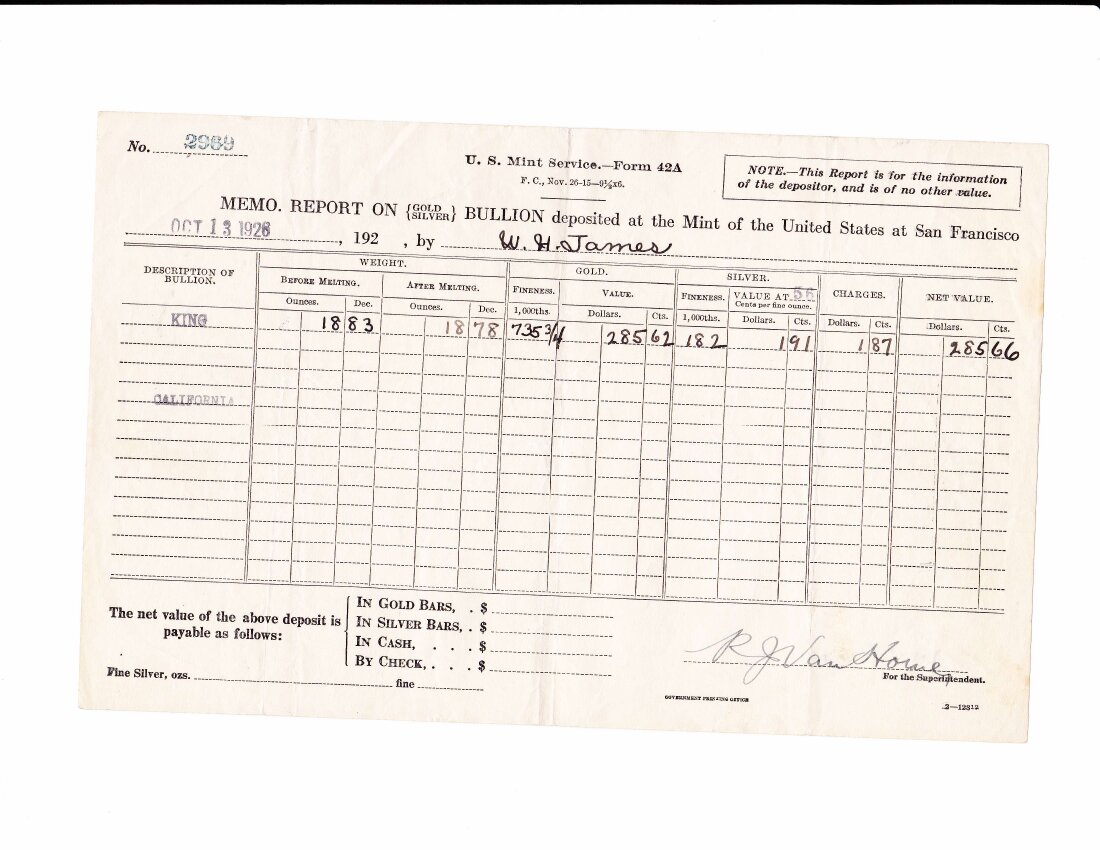 No. 2989
U. S. Mint Service.—Form 42A
F. C., Nov. 26-15—9½x6.
NOTE.—This Report is for the information
of the depositor, and is of no other value.
MEMO. REPORT ON {GOLD SILVER} BULLION deposited at the Mint of the United States at San Francisco
OCT 13 1926, 192 , by W. H. James
DESCRIPTION OF BULLION. WEIGHT. GOLD. SILVER. CHARGES. NET VALUE.
BEFORE MELTING. AFTER MELTING. FINENESS. VALUE. FINENESS. VALUE AT 56 Cents per fine ounce.
Ounces. Dec. Ounces. Dec. 1,000ths. Dollars. Cts. 1,000ths. Dollars. Cts. Dollars. Cts. Dollars. Cts.
KING 18 83 18 78 735 3/4 285 62 182 1 91 1 87 285 66
CALIFORNIA
The net value of the above deposit is
payable as follows:
IN GOLD BARS, . $
IN SILVER BARS, . $
IN CASH, . . . $
BY CHECK, . . . $
R J Van Horne
For the Superintendent.
Fine Silver, ozs. fine
GOVERNMENT PRINTING OFFICE
2—12812